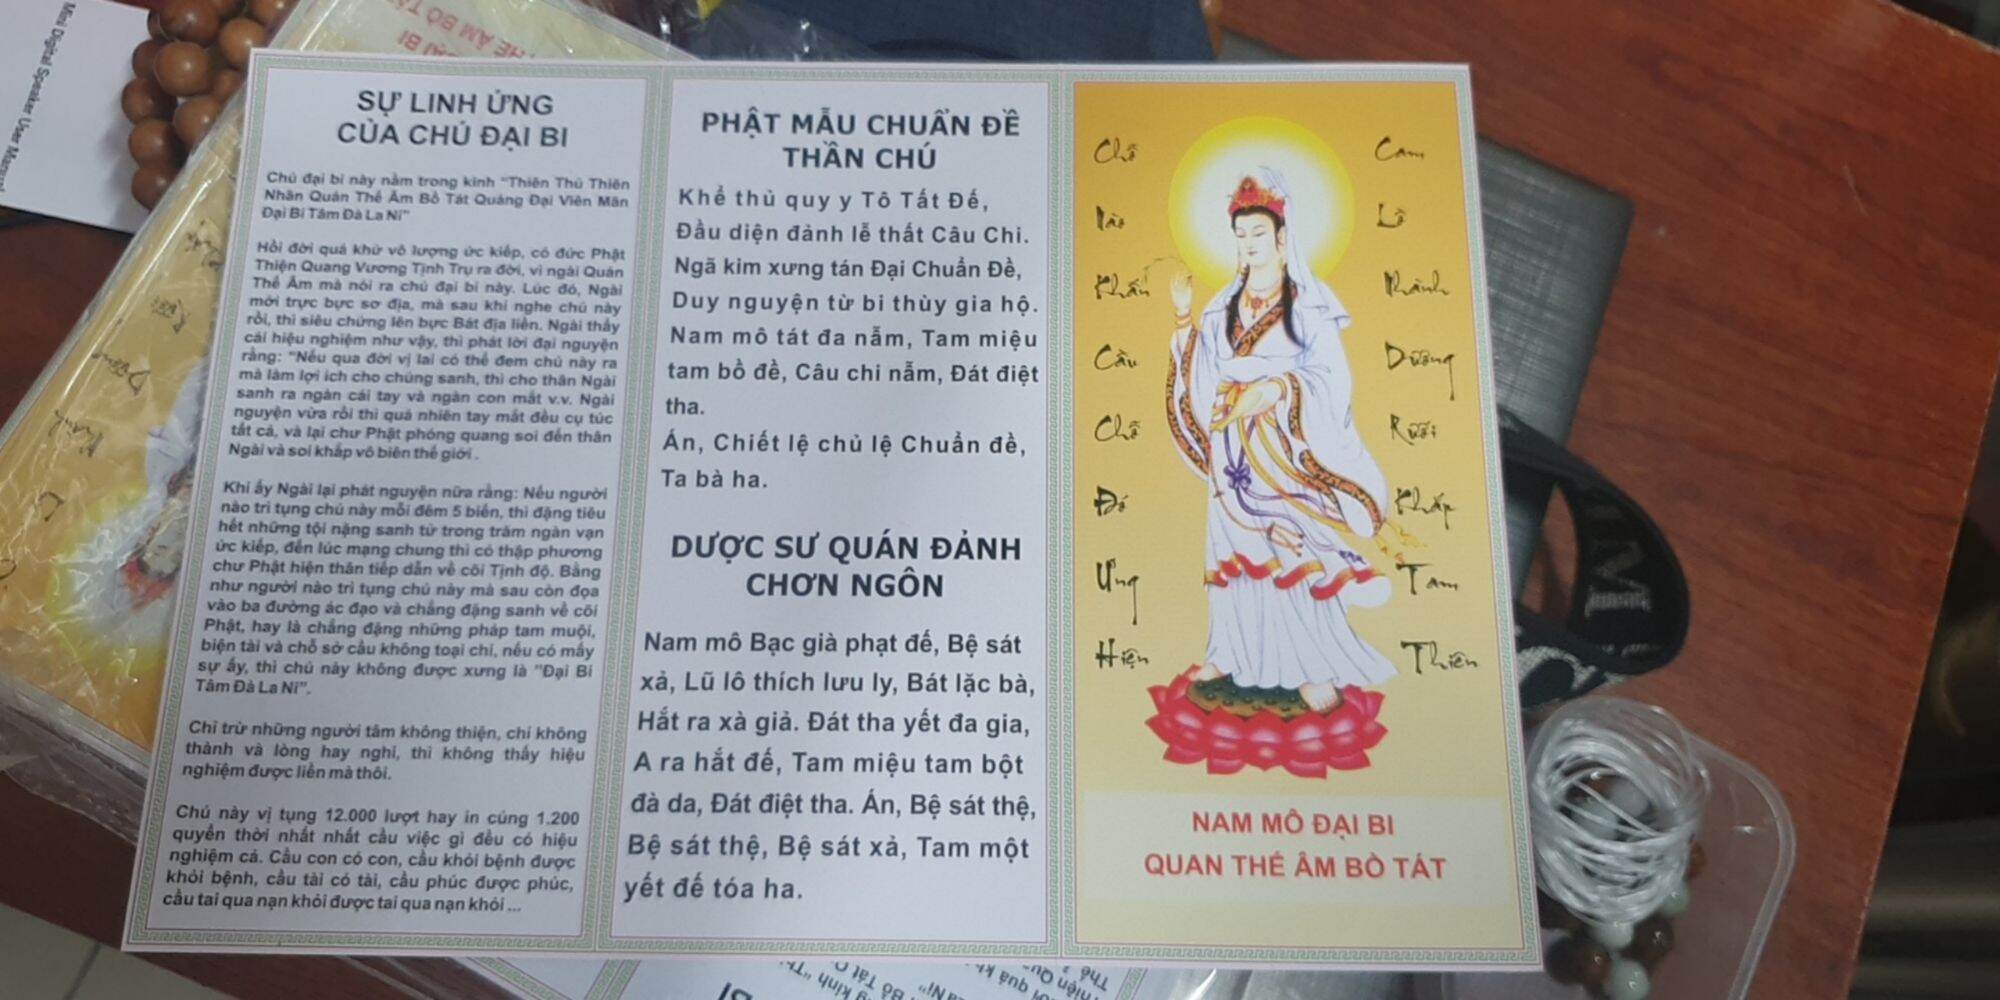 Mini Digital Speaker User Manual
SỰ LINH ỨNG
CỦA CHÚ ĐẠI BI
Chú đại bi này nằm trong kinh "Thiên Thủ Thiên
Nhãn Quán Thế Âm Bồ Tát Quảng Đại Viên Mãn
Đại Bi Tâm Đà La Ni"
Hồi đời quá khứ vô lượng ức kiếp, có đức Phật
Thiện Quang Vương Tịnh Trụ ra đời, vì ngài Quán
Thế Âm mà nói ra chú đại bi này. Lúc đó, Ngài
mới trực bực sơ địa, mà sau khi nghe chú này
rồi, thì siêu chứng lên bực Bát địa liền. Ngài thấy
cái hiệu nghiệm như vậy, thì phát lời đại nguyện
rằng: "Nếu qua đời vị lai có thể đem chú này ra
mà làm lợi ích cho chúng sanh, thì cho thân Ngài
sanh ra ngàn cái tay và ngàn con mắt v.v. Ngài
nguyện vừa rồi thì quả nhiên tay mắt đều cụ túc
tất cả, và lại chư Phật phóng quang soi đến thân
Ngài và soi khắp vô biên thế giới .
Khi ấy Ngài lại phát nguyện nữa rằng: Nếu người
nào trì tụng chú này mỗi đêm 5 biến, thì đặng tiêu
hết những tội nặng sanh tử trong trăm ngàn vạn
ức kiếp, đến lúc mạng chung thì có thập phương
chư Phật hiện thân tiếp dẫn về cõi Tịnh độ. Bằng
như người nào trì tụng chú này mà sau còn đọa
vào ba đường ác đạo và chẳng đặng sanh về cõi
Phật, hay là chẳng đặng những pháp tam muội,
biện tài và chỗ sở cầu không toại chí, nếu có mấy
sự ấy, thì chú này không được xưng là "Đại Bi
Tâm Đà La Ni".
Chỉ trừ những người tâm không thiện, chí không
thành và lòng hay nghi, thì không thấy hiệu
nghiệm được liền mà thôi.
Chú này vị tụng 12.000 lượt hay in cúng 1.200
quyển thời nhất nhất cầu việc gì đều có hiệu
nghiệm cả. Cầu con có con, cầu khỏi bệnh được
khỏi bệnh, cầu tài có tài, cầu phúc được phúc,
cầu tai qua nạn khỏi được tai qua nạn khỏi ...
PHẬT MẪU CHUẨN ĐỀ
THẦN CHÚ
Khể thủ quy y Tô Tất Đế,
Đầu diện đảnh lễ thất Câu Chi.
Ngã kim xưng tán Đại Chuẩn Đề,
Duy nguyện từ bi thùy gia hộ.
Nam mô tát đa nẫm, Tam miệu
tam bồ đề, Câu chi nẫm, Đát điệt
tha.
Án, Chiết lệ chủ lệ Chuẩn đề,
Ta bà ha.
DƯỢC SƯ QUÁN ĐẢNH
CHƠN NGÔN
Nam mô Bạc già phạt đế, Bệ sát
xả, Lũ lô thích lưu ly, Bát lặc bà,
Hắt ra xà giả. Đát tha yết đa gia,
A ra hắt đế, Tam miệu tam bột
đà da, Đát điệt tha. Án, Bệ sát thệ,
Bệ sát thệ, Bệ sát xả, Tam một
yết đế tóa ha.
Chỗ
Nào
Khấn
Cầu
Chỗ
Đó
Ứng
Hiện
Cam
Lồ
Nhành
Dương
Rưới
Khắp
Tam
Thiên
NAM MÔ ĐẠI BI
QUAN THẾ ÂM BỒ TÁT